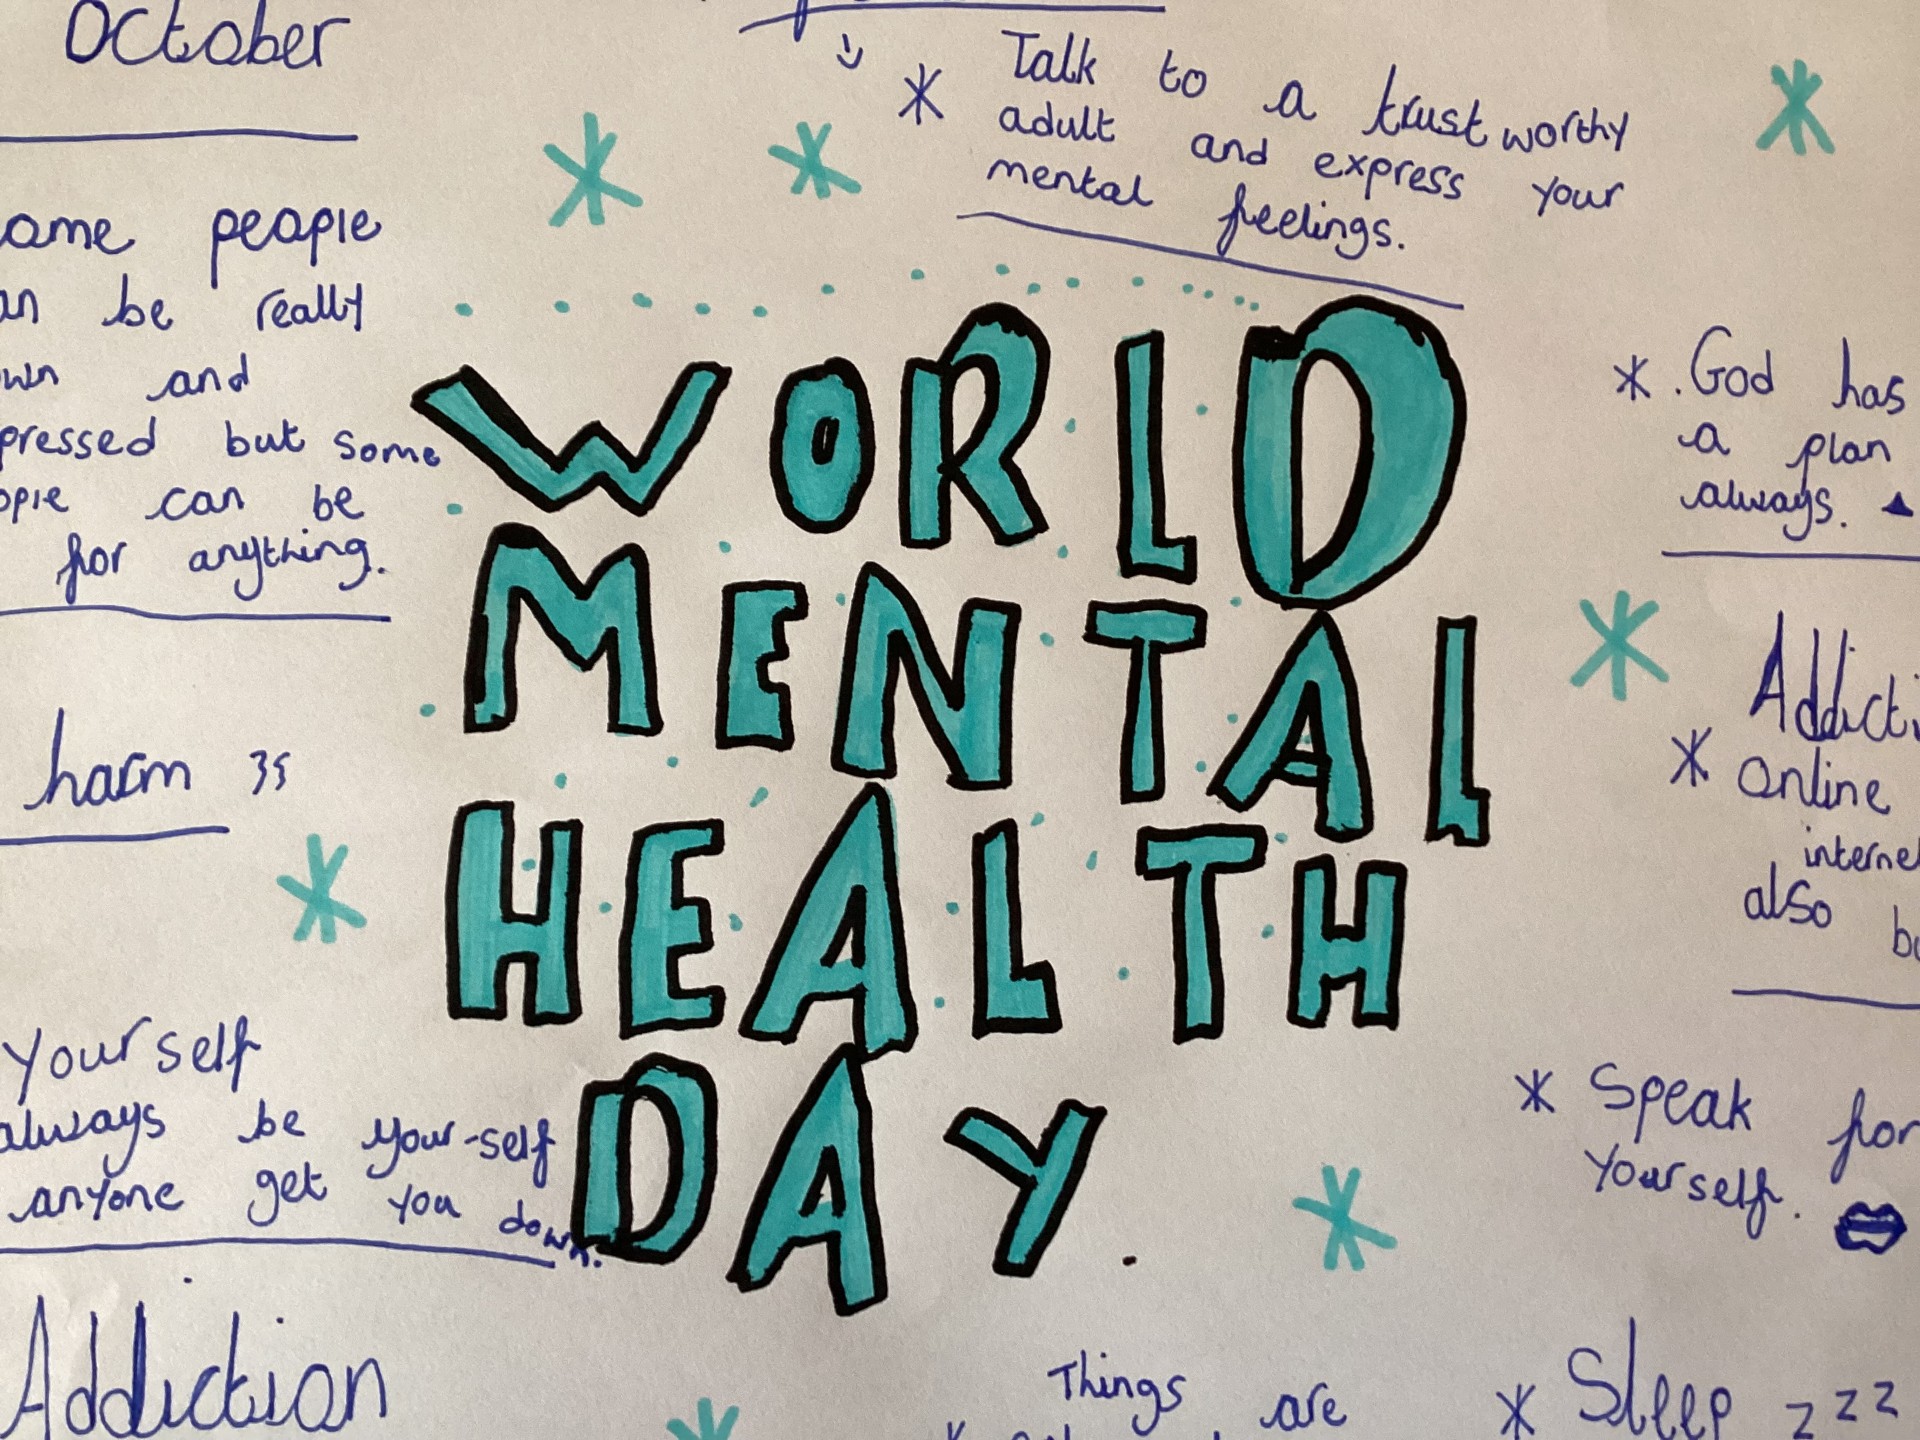 October
people
be really
and
but some
can be
for anything.
harm
Yourself
always be your-self
anyone get you down.
Addiction
* Talk to a trust worthy
adult and express your
mental feelings.
WORLD
MENTAL
HEALTH
DAY.
* . God has
a plan
always.
* Online
also
* Speak for
Yourself.
Things are
* Sleep zzz